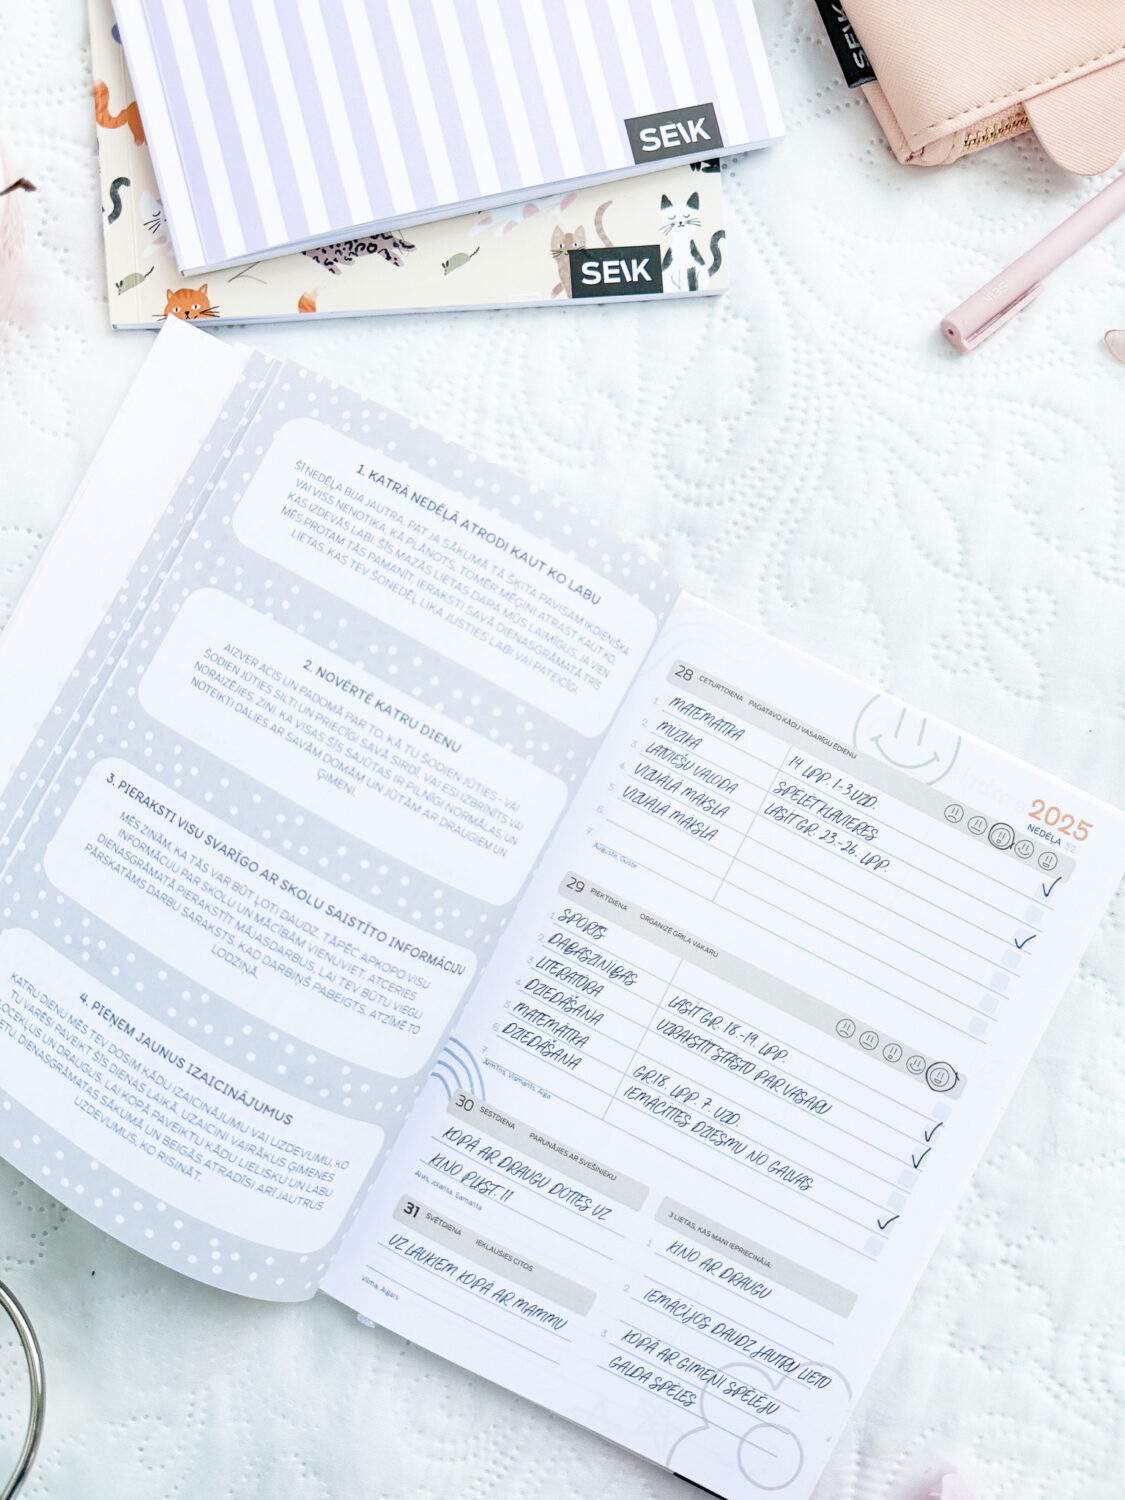 SE\K
SE\K
SE\K
SE\K
1. KATRĀ NEDĒĻĀ ATRODI KAUT KO LABU
ŠĪ NEDĒĻA BIJA JAUTRA, PAT JA SĀKUMĀ TĀ ŠĶITA PAVISAM IKDIENIŠĶA
VAI VISS NENOTIKA, KĀ PLĀNOTS, TOMĒR MĒĢINI ATRAST KAUT KO,
KAS IZDEVĀS LABI. ŠĪS MAZĀS LIETAS DARA MŪS LAIMĪGUS, JA VIEN
MĒS PROTAM TĀS PAMANĪT. IERAKSTI SAVĀ DIENASGRĀMATĀ TRĪS
LIETAS, KAS TEV ŠONEDĒĻ LIKA JUSTIES LABI VAI PATEICĪGI.
2. NOVĒRTĒ KATRU DIENU
AIZVER ACIS UN PADOMĀ PAR TO, KĀ TU ŠODIEN JŪTIES - VAI
ŠODIEN JŪTIES SILTI UN PRIECĪGI SAVĀ SIRDĪ, VAI ESI IZBRĪNĪTS VAI
NORAIZĒJIES. ZINI, KA VISAS ŠĪS SAJŪTAS IR PILNĪGI NORMĀLAS, UN
NOTEIKTI DALIES AR SAVĀM DOMĀM UN JŪTĀM AR DRAUGIEM UN
ĢIMENI.
3. PIERAKSTI VISU SVARĪGO AR SKOLU SAISTĪTO INFORMĀCIJU
MĒS ZINĀM, KA TĀS VAR BŪT ĻOTI DAUDZ. TĀPĒC APKOPO VISU
INFORMĀCIJU PAR SKOLU UN MĀCĪBĀM VIENUVIET. ATCERIES
DIENASGRĀMATĀ PIERAKSTĪT MĀJASDARBUS, LAI TEV BŪTU VIEGLI
PĀRSKATĀMS DARBU SARAKSTS, KAD DARBIŅŠ PABEIGTS, ATZĪMĒ TO
LODZIŅĀ.
4. PIEŅEM JAUNUS IZAICINĀJUMUS
KATRU DIENU MĒS TEV DOSIM KĀDU IZAICINĀJUMU VAI UZDEVUMU, KO
TU VARĒSI PAVEIKT ŠĪS DIENAS LAIKĀ. UZAICINI VAIRĀKUS ĢIMENES
LOCEKĻUS UN DRAUGUS, LAI KOPĀ PAVEIKTU KĀDU LIELISKU UN LABU
DIENASGRĀMATAS SĀKUMĀ UN BEIGĀS ATRADĪSI ARĪ JAUTRUS
UZDEVUMUS, KO RISINĀT.
2025
NEDĒĻA
28 CETURTDIENA PAGATAVO KĀDU VASARĪGU ĒDIENU
1. MATEMĀTIKA 14 LPP. 1-3.UZD.
2. MŪZIKA SPĒLĒT KLAVIERES
3. LATVIEŠU VALODA LASĪT GR. 23.-26. LPP.
4. VIZUĀLĀ MĀKSLA
5. VIZUĀLĀ MĀKSLA
6.
7.
Augusts, Guste
29 PIEKTDIENA ORGANIZĒ GRILA VAKARU
1. SPORTS
2. DABASZINĪBAS LASĪT GR. 18.-19. LPP.
3. LITERATŪRA UZRAKSTĪT STĀSTO PAR VASARU
4. DZIEDĀŠANA
5. MATEMĀTIKA GR.18. LPP. 7. UZD.
6. DZIEDĀŠANA IEMĀCĪTIES DZIESMU NO GALVAS
7.
Armīns, Vismants, Aiga
30 SESTDIENA PARUNĀJIES AR SVEŠINIEKU
KOPĀ AR DRAUGU DOTIES UZ
KINO PLKST. 11
Alvis, Jolanta, Samanta
31 SVĒTDIENA IEKLAUSIES CITOS
UZ LAUKIEM KOPĀ AR MAMMU
Vilma, Aigars
3 LIETAS, KAS MANI IEPRIECINĀJA:
1. KINO AR DRAUGU
2. IEMĀCĪJOS DAUDZ JAUTRU LIETO
3. KOPĀ AR ĢIMENI SPĒLĒJU
GALDA SPĒLES